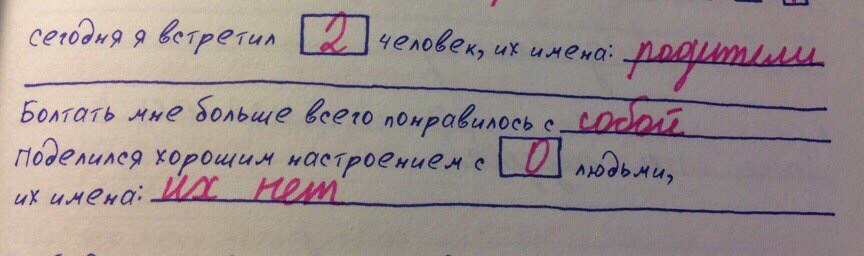 сегодня я встретил 2 человек, их имена: родители
Болтать мне больше всего понравилось с собой
Поделился хорошим настроением с 0 людьми,
их имена: их нет